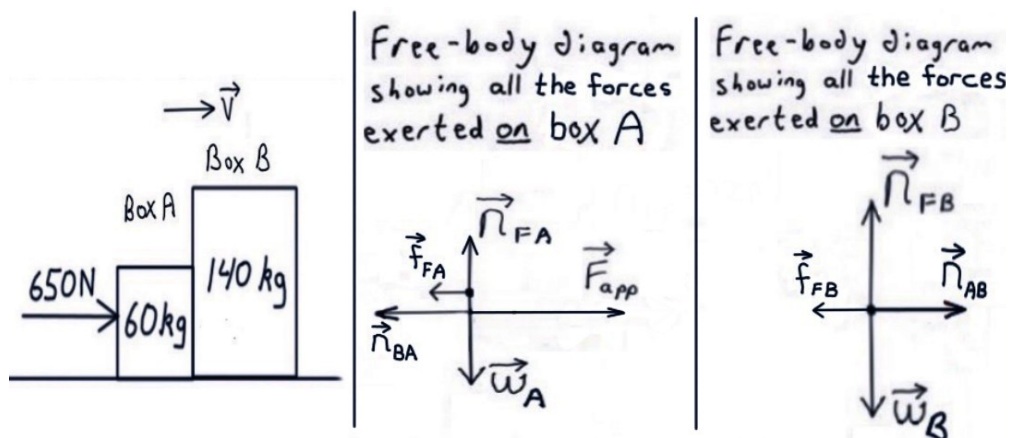 V
Box B
Box A
650N
60kg
140 kg
Free-body diagram
showing all the forces
exerted on box A
n FA
f FA
F app
n BA
w A
Free-body diagram
showing all the forces
exerted on box B
n FB
f FB
n AB
w B